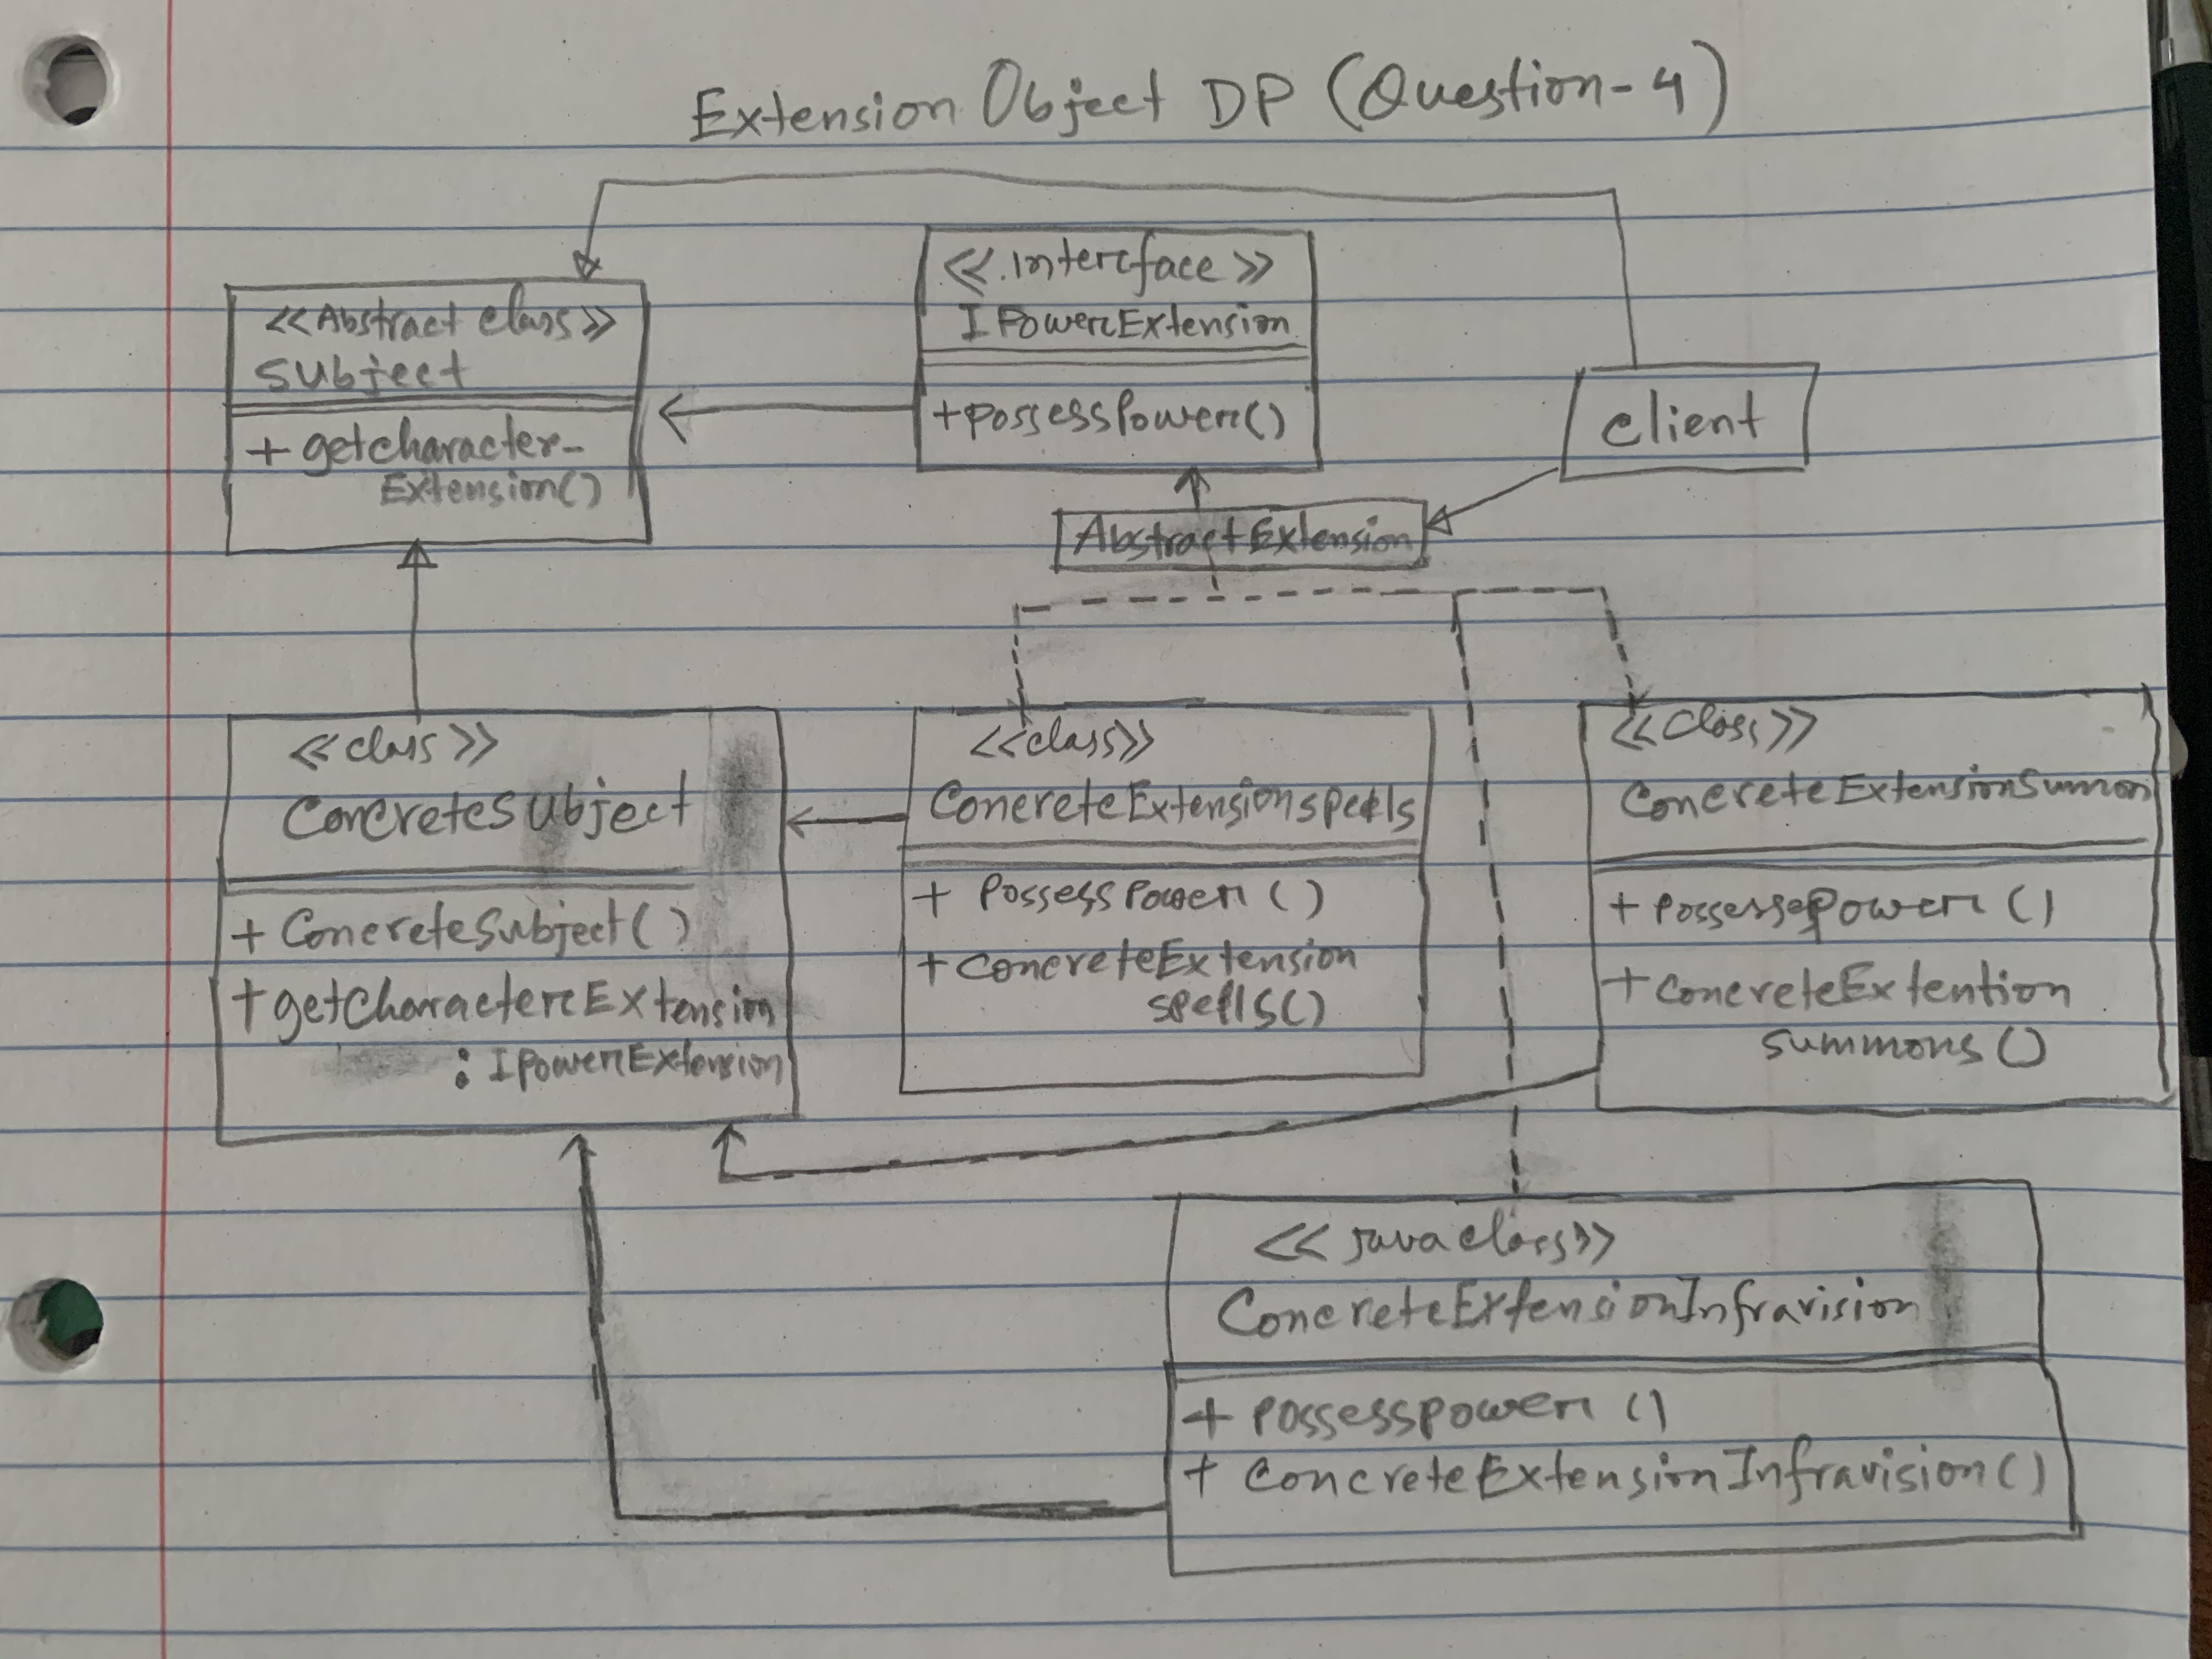 Extension Object DP (Question-4)
<<Abstract class>>
Subject
+ getcharacter-
Extension()
<<interface>>
IPowerExtension
+PossessPower()
client
AbstractExtension
<<class>>
ConcreteSubject
+ ConcreteSubject()
+ getCharacterExtension
: IPowerExtension
<<class>>
ConcreteExtensionSpells
+ PossessPower()
+ConcreteExtension
spells()
<<Class>>
ConcreteExtensionSummon
+ PossessPower()
+ConcreteExtention
summons()
<<java class>>
ConcreteExtensionInfravision
+ PossessPower()
+ ConcreteExtensionInfravision()